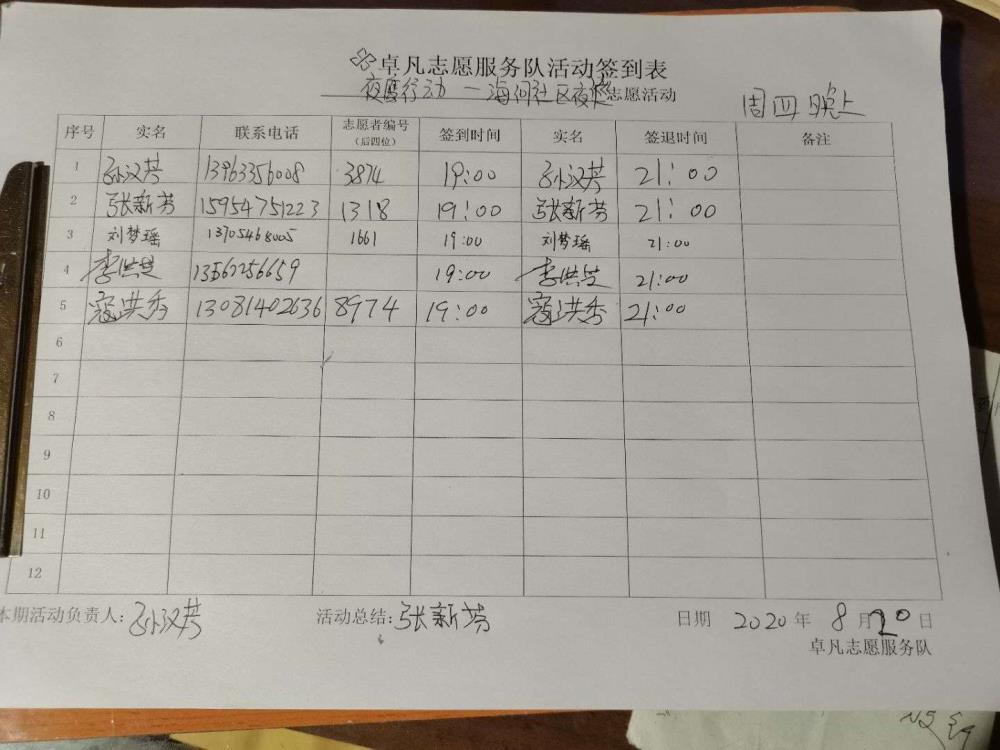 卓凡志愿服务队活动签到表
夜鹰行动—海河社区夜巡志愿活动
周四晚上
序号 实名 联系电话 志愿者编号(后四位) 签到时间 实名 签退时间 备注
1 孙汉芳 13963356008 3874 19:00 孙汉芳 21:00
2 张新芳 15954751223 1318 19:00 张新芳 21:00
3 刘梦瑶 13705468005 1661 19:00 刘梦瑶 21:00
4 李洪芝 13562256659 19:00 李洪芝 21:00
5 寇洪秀 13081402636 8974 19:00 寇洪秀 21:00
6
7
8
9
10
11
12
本期活动负责人:孙汉芳 活动总结:张新芳 日期 2020年8月20日
卓凡志愿服务队